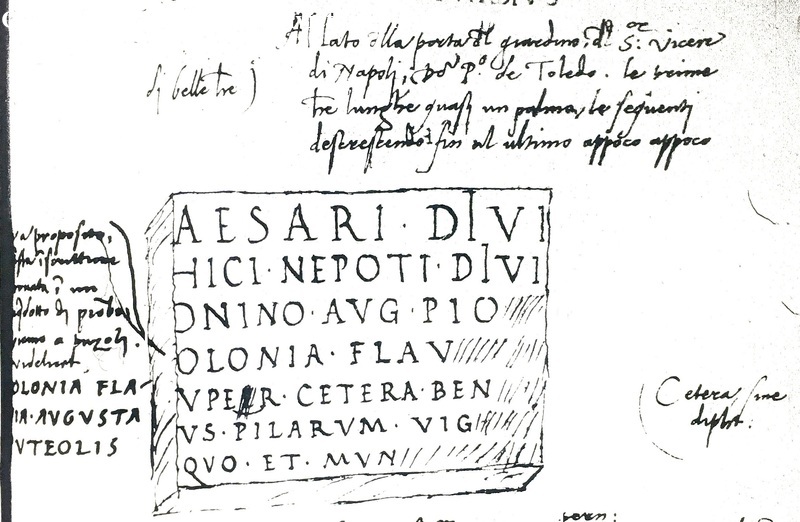 Al lato dlla porta dl giardino, dl S.or Vicere
di Napoli, Don P.o de Toledo. le prime
tre lunghe quasi un palmo, le sequenti
descrescendo fin al ultimo appoco appoco
di belle lre
AESARI · DIVI
HICI · NEPOTI · DIVI
ONINO · AVG · PIO
OLONIA · FLAV
VPER · CETERA · BEN
VS · PILARVM · VIG
QVO · ET · MVN
va proposito,
un
a puzoli.
videlicet
OLONIA FLA-
IA · AVGVSTA
VTEOLIS
Cetera, sine
dipht.